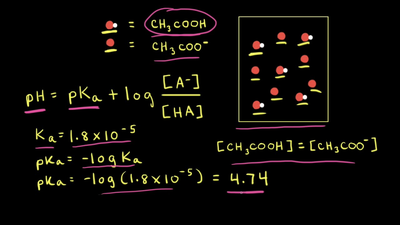 = CH₃COOH
= CH₃COO⁻
pH = pKa + log [A⁻] / [HA]
Ka = 1.8 x 10⁻⁵
pKa = -log Ka
pKa = -log (1.8 x 10⁻⁵) = 4.74
[CH₃COOH] = [CH₃COO⁻]